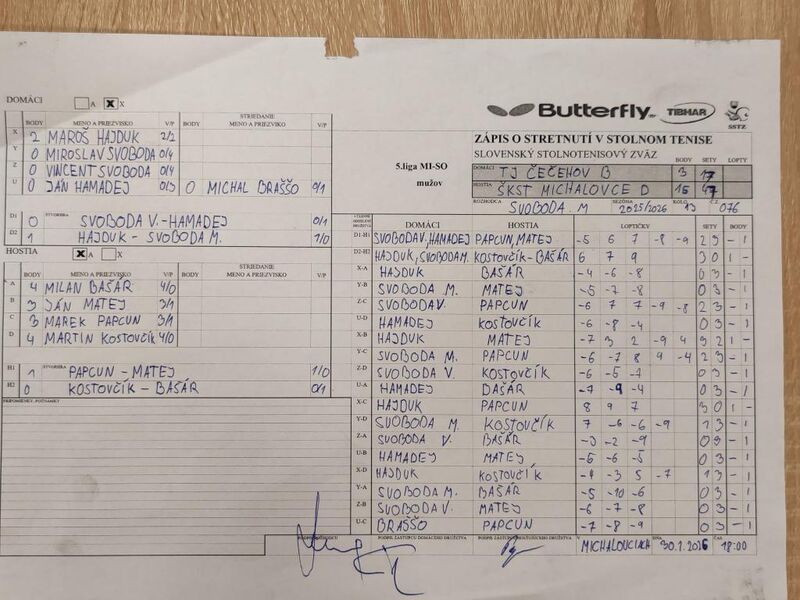 DOMÁCI A X X
Butterfly TIBHAR SSTZ
BODY MENO A PRIEZVISKO V/P BODY STRIEDANIE MENO A PRIEZVISKO V/P
X 2 MAROŠ HAJDUK 2/2
Y 0 MIROSLAV SVOBODA 0/4
Z 0 VINCENT SVOBODA 0/4
U 0 JÁN HAMADEJ 0/3 0 MICHAL BRAŠŠO 0/1
D1 0 ŠTVORHRA SVOBODA V.-HAMADEJ 0/1
D2 1 HAJDUK - SVOBODA M. 1/0
HOSTIA X A X
BODY MENO A PRIEZVISKO V/P BODY STRIEDANIE MENO A PRIEZVISKO V/P
A 4 MILAN BAŠÁR 4/0
B 3 JÁN MATEJ 3/1
C 3 MAREK PAPCUN 3/1
D 4 MARTIN KOSTOVČÍK 4/0
H1 1 ŠTVORHRA PAPCUN - MATEJ 1/0
H2 0 KOSTOVČÍK - BAŠÁR 0/1
PRIPOMIENKY, POZNÁMKY
5.liga MI-SO
mužov
ZÁPIS O STRETNUTÍ V STOLNOM TENISE
SLOVENSKÝ STOLNOTENISOVÝ ZVÄZ BODY SETY LOPTY
DOMÁCI TJ ČEČEHOV B 3 17
HOSTIA ŠKST MICHALOVCE D 15 47
ROZHODCA SVOBODA M SEZÓNA 2025/2026 KOLO 13 Č.Z. 076
DOMÁCI HOSTIA LOPTIČKY SETY BODY
D1-H1 SVOBODA V, HAMADEJ PAPCUN, MATEJ -5 6 7 -8 -9 2 3 - 1
D2-H2 HAJDUK, SVOBODA M. KOSTOVČÍK-BAŠÁR 6 7 9 3 0 1 -
X-A HAJDUK BAŠÁR -4 -6 -8 0 3 - 1
Y-B SVOBODA M. MATEJ -5 -7 -8 0 3 - 1
Z-C SVOBODA V. PAPCUN -6 7 7 -9 -8 2 3 - 1
U-D HAMADEJ KOSTOVČÍK -6 -8 -4 0 3 - 1
X-B HAJDUK MATEJ -7 3 2 -9 4 3 2 1 -
Y-C SVOBODA M. PAPCUN -6 -7 8 9 -4 2 3 - 1
Z-D SVOBODA V. KOSTOVČÍK -6 -5 -7 0 3 - 1
U-A HAMADEJ BAŠÁR -7 -9 -4 0 3 - 1
X-C HAJDUK PAPCUN 8 9 7 3 0 1 -
Y-D SVOBODA M. KOSTOVČÍK 7 -6 -6 -9 1 3 - 1
Z-A SVOBODA V. BAŠÁR -2 -9 0 3 - 1
U-B HAMADEJ MATEJ -5 -6 -5 0 3 - 1
X-D HAJDUK KOSTOVČÍK -3 5 -7 1 3 - 1
Y-A SVOBODA M. BAŠÁR -5 -10 -6 0 3 - 1
Z-B SVOBODA V. MATEJ -6 -7 -8 0 3 - 1
U-C BRAŠŠO PAPCUN -7 -8 -9 0 3 - 1
PODPIS ROZHODCU PODPIS ZÁSTUPCU DOMÁCEHO DRUŽSTVA PODPIS ZÁSTUPCU HOSŤUJÚCEHO DRUŽSTVA V MICHALOVCIACH DŇA 30.1.2026 ČAS 18:00